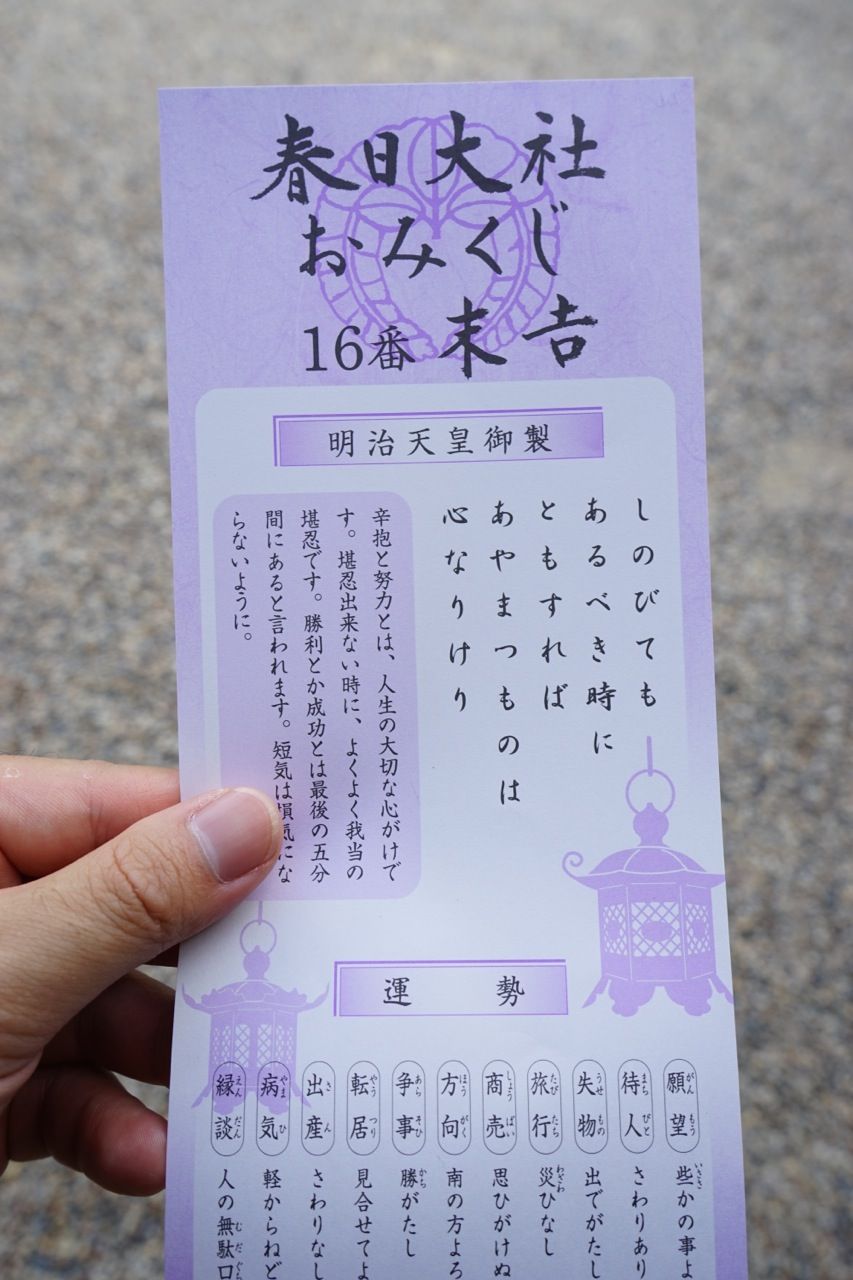 春日大社
おみくじ
16番 末吉
明治天皇御製
しのびても
あるべき時に
ともすれば
あやまつものは
心なりけり
辛抱と努力とは、人生の大切な心がけで
す。堪忍出来ない時に、よくよく我当の
堪忍です。勝利とか成功とは最後の五分
間にあると言われます。短気は損気にな
らないように。
運勢
願望 些かの事よ
待人 さわりあり
失物 出でがたし
旅行 災ひなし
商売 思ひがけぬ
方向 南の方よろ
争事 勝がたし
転居 見合せてよ
出産 さわりなし
病気 軽からねど
縁談 人の無駄口